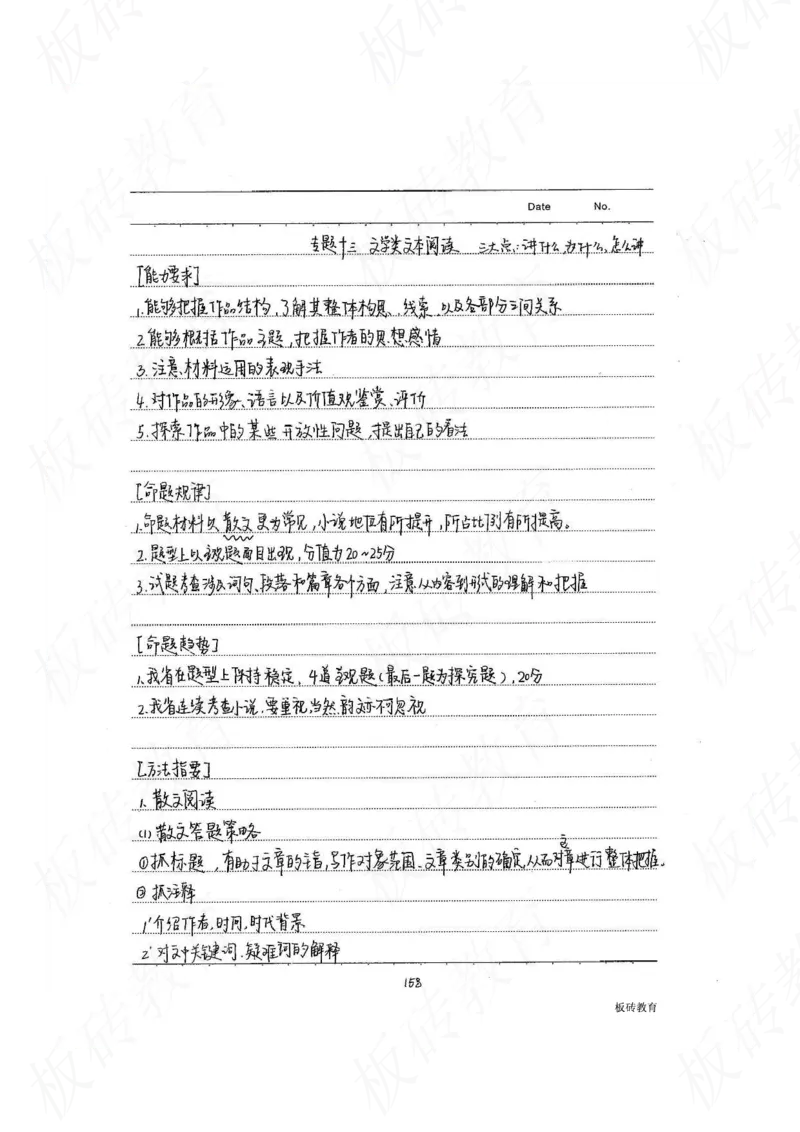 Date No.
专题十三 文学类文本阅读 三大点:讲什么,为什么,怎么讲
[能力要求]
1.能够把握作品结构,了解其整体构思、线索,以及各部分之间关系
2.能够根据作品主题,把握作者的思想感情
3.注意材料运用的表现手法
4.对作品的形象、语言以及价值观鉴赏、评价
5.探索作品中的某些开放性问题,提出自己的看法
[命题规律]
1.命题材料以散文更为常见,小说地位有所提升,所占比例有所提高。
2.题型上以主观题面目出现,分值为20~25分
3.试题考查涉及词句、段落和篇章各个方面,注意从内容到形式的理解和把握
[命题趋势]
1.我省在题型上保持稳定,4道主观题(最后一题为探究题),20分
2.我省连续考查小说,要重视,当然,散文亦不可忽视
[方法指要]
1.散文阅读
(1)散文答题策略
①抓标题,有助于文章的主旨,写作对象范围、文章类别的确定,从而对文章进行整体把握。
②抓注释
1'介绍作者,时间,时代背景
2'对文中关键词、疑难词的解释
158
板砖教育
板砖教育